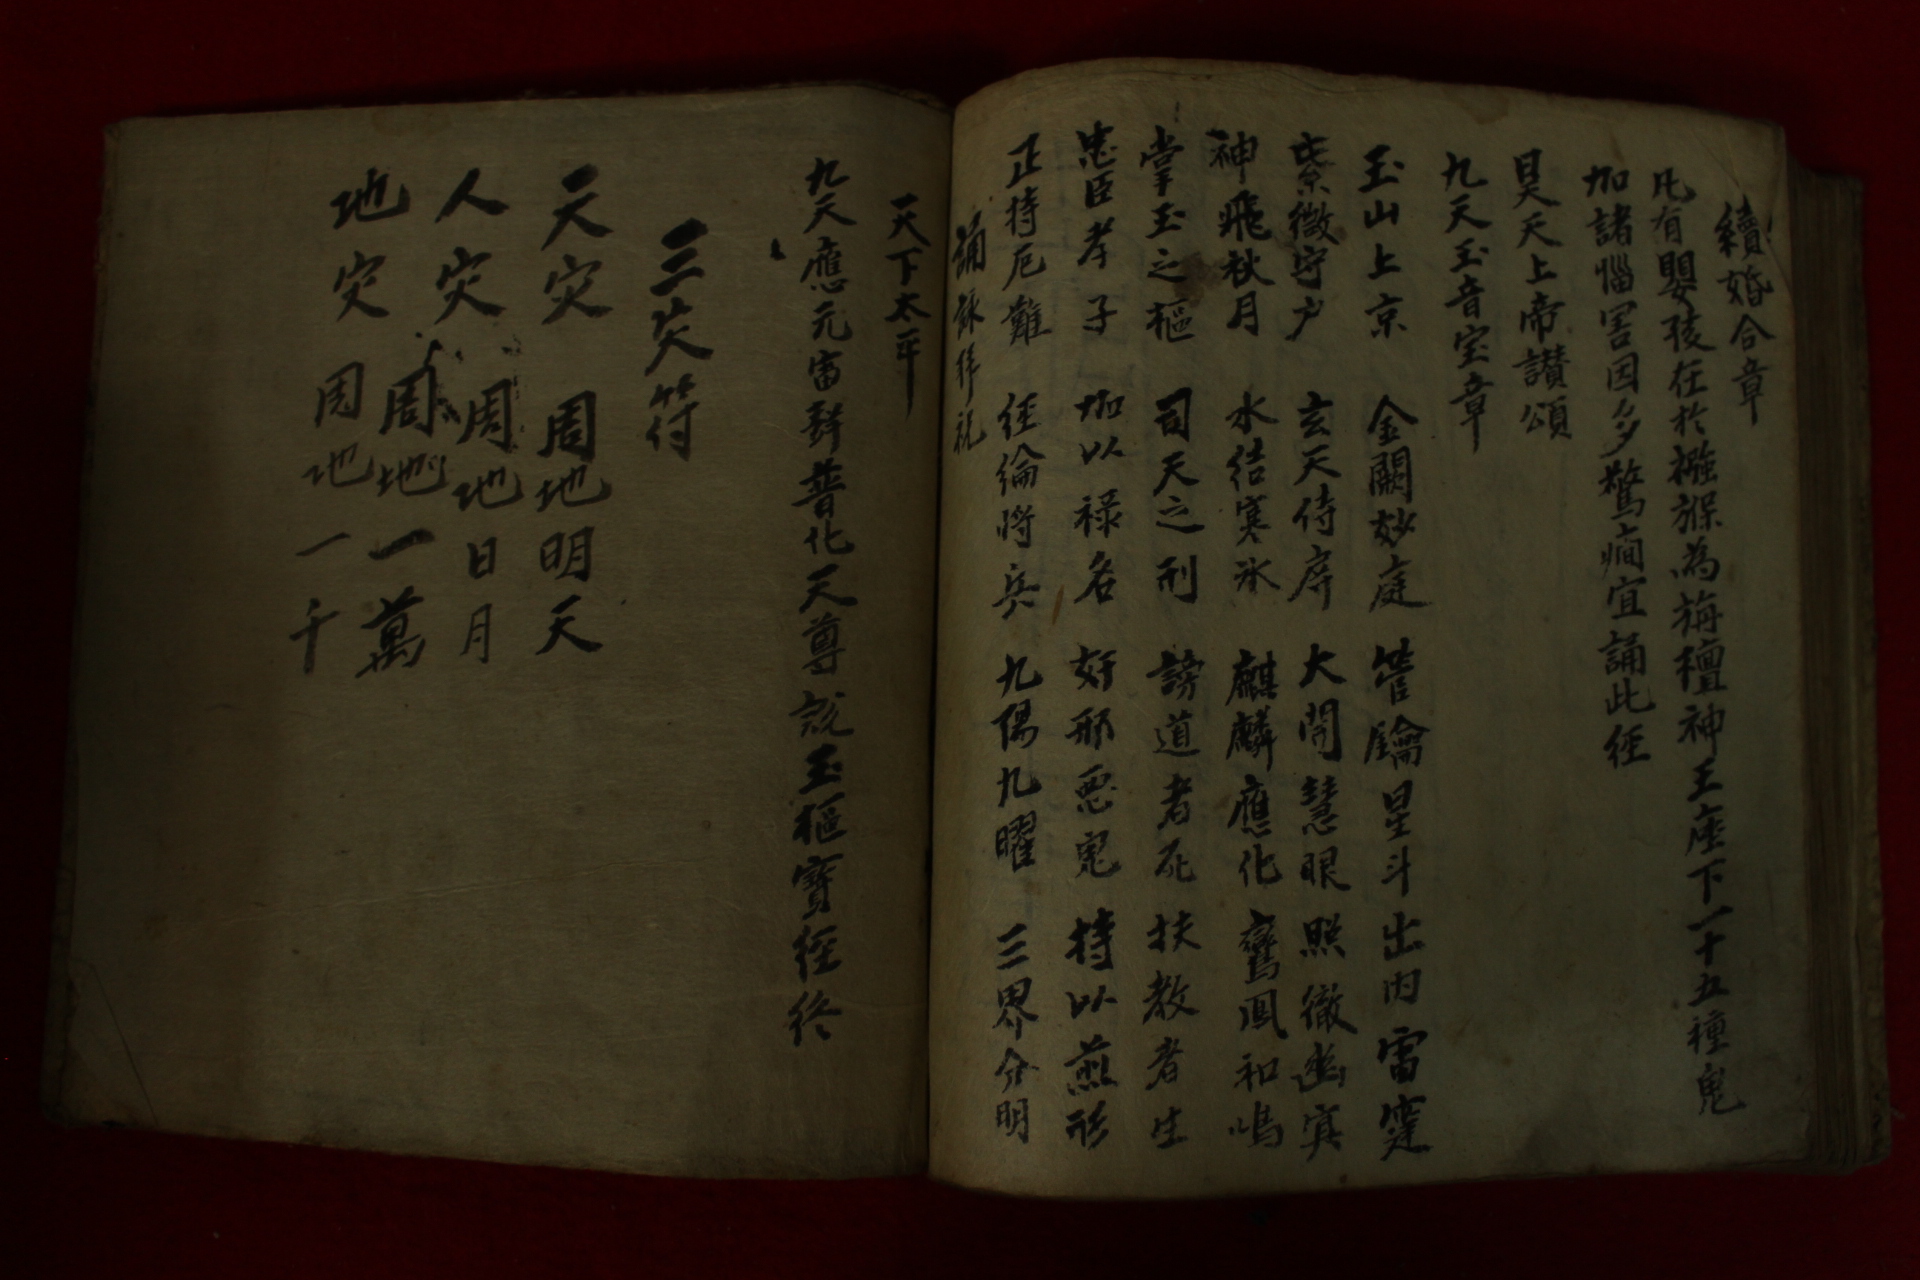 續婚合章
凡有嬰孩在於襁褓為栴檀神王座下一十五種鬼
加諸惱害因多驚癎宜誦此经
昊天上帝讃頌
九天玉音宝章
玉山上京 金闕妙庭 管鑰星斗 出内雷霆
紫微守户 玄天侍庌 大開慧眼 照徹幽㝠
神飛秋月 水结寒氷 麒麟應化 鸞鳳和鳴
掌玉之樞 司天之刑 謗道者死 扶教者生
忠臣孝子 加以禄名 奸邪惡鬼 持以煎形
正持厄難 径綸將兵 九陽九曜 三界分明
誦詠拜祝
天下太平
九天應元雷聲普化天尊説玉樞寶经终
三灾符
天灾 周地明天
人灾 周地日月
周地一萬
地灾 周地一千